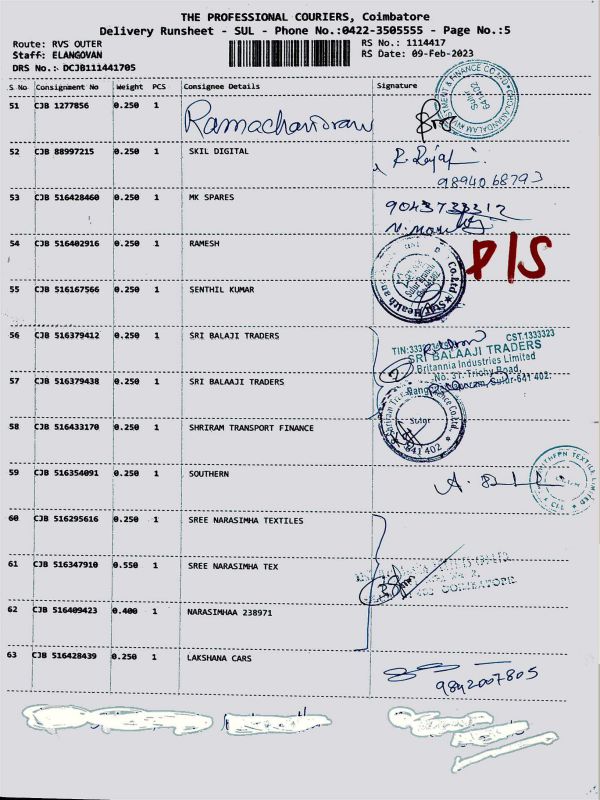 THE PROFESSIONAL COURIERS, Coimbatore
Delivery Runsheet - SUL - Phone No.:0422-3505555 - Page No.:5
Route: RVS OUTER
RS No.: 1114417
Staff: ELANGOVAN
RS Date: 09-Feb-2023
DRS No.: DCJB111441705
S No Consignment No Weight PCS Consignee Details Signature
51 CJB 1277856 0.250 1 Ramachandran
CHOLAMANDALAM INVESTMENT & FINANCE CO LTD
Sulur
641402
52 CJB 88997215 0.250 1 SKIL DIGITAL
9894068793
53 CJB 516428460 0.250 1 MK SPARES
54 CJB 516402916 0.250 1 RAMESH
P/S
Star Health
Co.Ltd
Sulur Branch
55 CJB 516167566 0.250 1 SENTHIL KUMAR
56 CJB 516379412 0.250 1 SRI BALAJI TRADERS
CST.1333323
SRI BALAAJI TRADERS
Britannia Industries Limited
No. 37. Trichy Road,
Sulur-641 402.
57 CJB 516379438 0.250 1 SRI BALAAJI TRADERS
58 CJB 516433170 0.250 1 SHRIRAM TRANSPORT FINANCE
Shriram Transport Finance Co.Ltd.
Sulur
641 402
59 CJB 516354091 0.250 1 SOUTHERN
60 CJB 516295616 0.250 1 SREE NARASIMHA TEXTILES
61 CJB 516347910 0.550 1 SREE NARASIMHA TEX
COIMBATORE
62 CJB 516409423 0.400 1 NARASIMHAA 238971
63 CJB 516428439 0.250 1 LAKSHANA CARS
9842007805